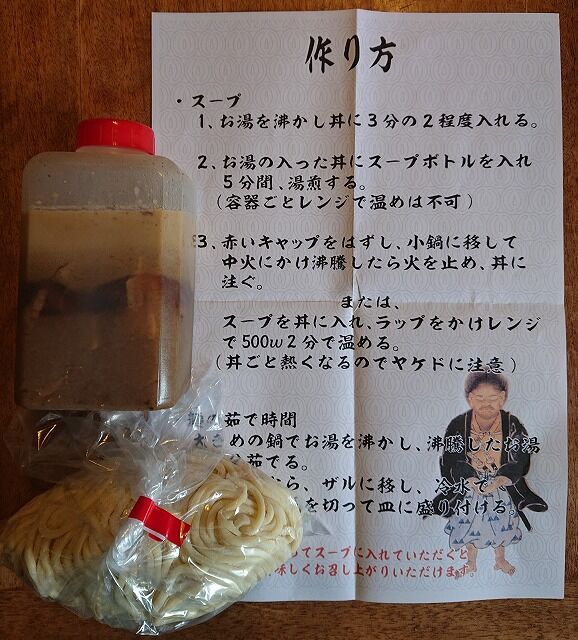 作り方
・スープ
1、お湯を沸かし丼に3分の2程度入れる。
2、お湯の入った丼にスープボトルを入れ
5分間、湯煎する。
(容器ごとレンジで温めは不可)
3、赤いキャップをはずし、小鍋に移して
中火にかけ沸騰したら火を止め、丼に
注ぐ。
または、
スープを丼に入れ、ラップをかけレンジ
で500w2分で温める。
(丼ごと熱くなるのでヤケドに注意)
麺の茹で時間
大きめの鍋でお湯を沸かし、沸騰したお湯
茹でる。
ら、ザルに移し、冷水で
を切って皿に盛り付ける。
してスープに入れていただくと
味しくお召し上がりいただけます。